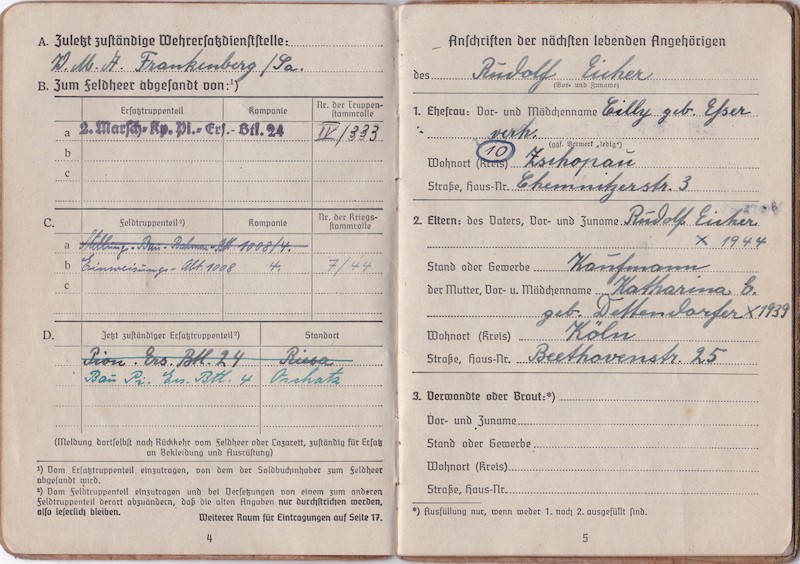 A. Zuletzt zuständige Wehrersatzdienststelle:
W. M. A. Frankenberg/Sa.
B. Zum Feldheer abgesandt von:¹)
Ersatztruppenteil Kompanie Nr. der Truppenstammrolle
a 2. Marsch-Kp. Pi.-Ers.-Btl. 24 IV/333
b
c
C. Feldtruppenteil²) Kompanie Nr. der Kriegsstammrolle
a 1008/4.
b Einweisungs-Abt. 1008 4. 7/44
c
D. Jetzt zuständiger Ersatztruppenteil²) Standort
Pion. Ers. Btl. 24 Riesa
Bau Pi. Ers. Btl. 4 Oschatz
(Meldung dortselbst nach Rückkehr vom Feldheer oder Lazarett, zuständig für Ersatz
an Bekleidung und Ausrüstung)
¹) Vom Ersatztruppenteil einzutragen, von dem der Soldbuchinhaber zum Feldheer
abgesandt wird.
²) Vom Feldtruppenteil einzutragen und bei Versetzungen von einem zum anderen
Feldtruppenteil derart abzuändern, daß die alten Angaben nur durchstrichen werden,
also leserlich bleiben.
Weiterer Raum für Eintragungen auf Seite 17.
4
Anschriften der nächsten lebenden Angehörigen
des Rudolf Eicher
(Vor- und Zuname)
1. Ehefrau: Vor- und Mädchenname Cilly geb. Esser
verh.
(ggf. Vermerk „ledig")
Wohnort (Kreis) 10 Zschopau
Straße, Haus-Nr. Chemnitzerstr. 3
2. Eltern: des Vaters, Vor- und Zuname Rudolf Eicher
x 1944
Stand oder Gewerbe Kaufmann
der Mutter, Vor- u. Mädchenname Katharina E.
geb. Dettendorfer x 1939
Wohnort (Kreis) Köln
Straße, Haus-Nr. Beethovenstr. 25
3. Verwandte oder Braut:*)
Vor- und Zuname
Stand oder Gewerbe
Wohnort (Kreis)
Straße, Haus-Nr.
*) Ausfüllung nur, wenn weder 1. noch 2. ausgefüllt sind.
5